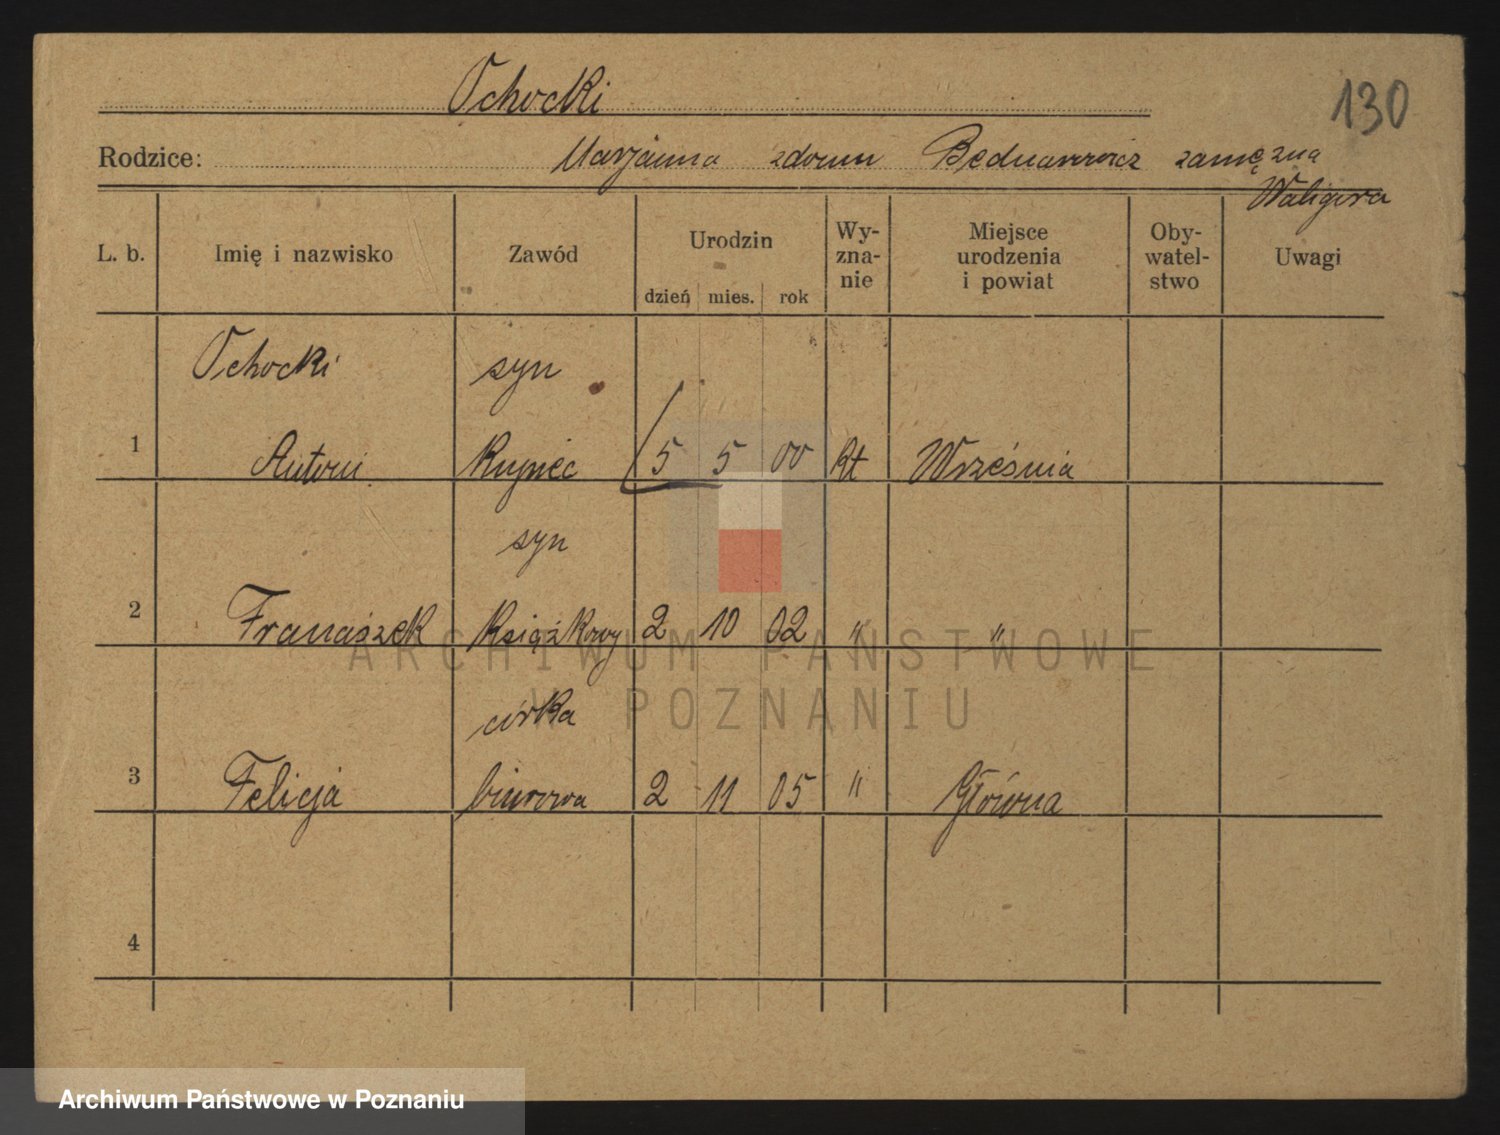 Ochocki
130
Rodzice: Marjanna zdomu Bednarowicz zamężna
Waligóra
L. b. Imię i nazwisko Zawód Urodzin Wy- Miejsce Oby- Uwagi
zna- urodzenia watel-
nie i powiat stwo
dzień mies. rok
Ochocki syn
1 Antoni Kupiec 5 5 00 kt Września
syn
2 Franciszek Książkowy 2 10 02 " "
ARCHIWUM PAŃSTWOWE
W POZNANIU
córka
3 Felicja biurowa 2 11 05 " Główna
4
Archiwum Państwowe w Poznaniu